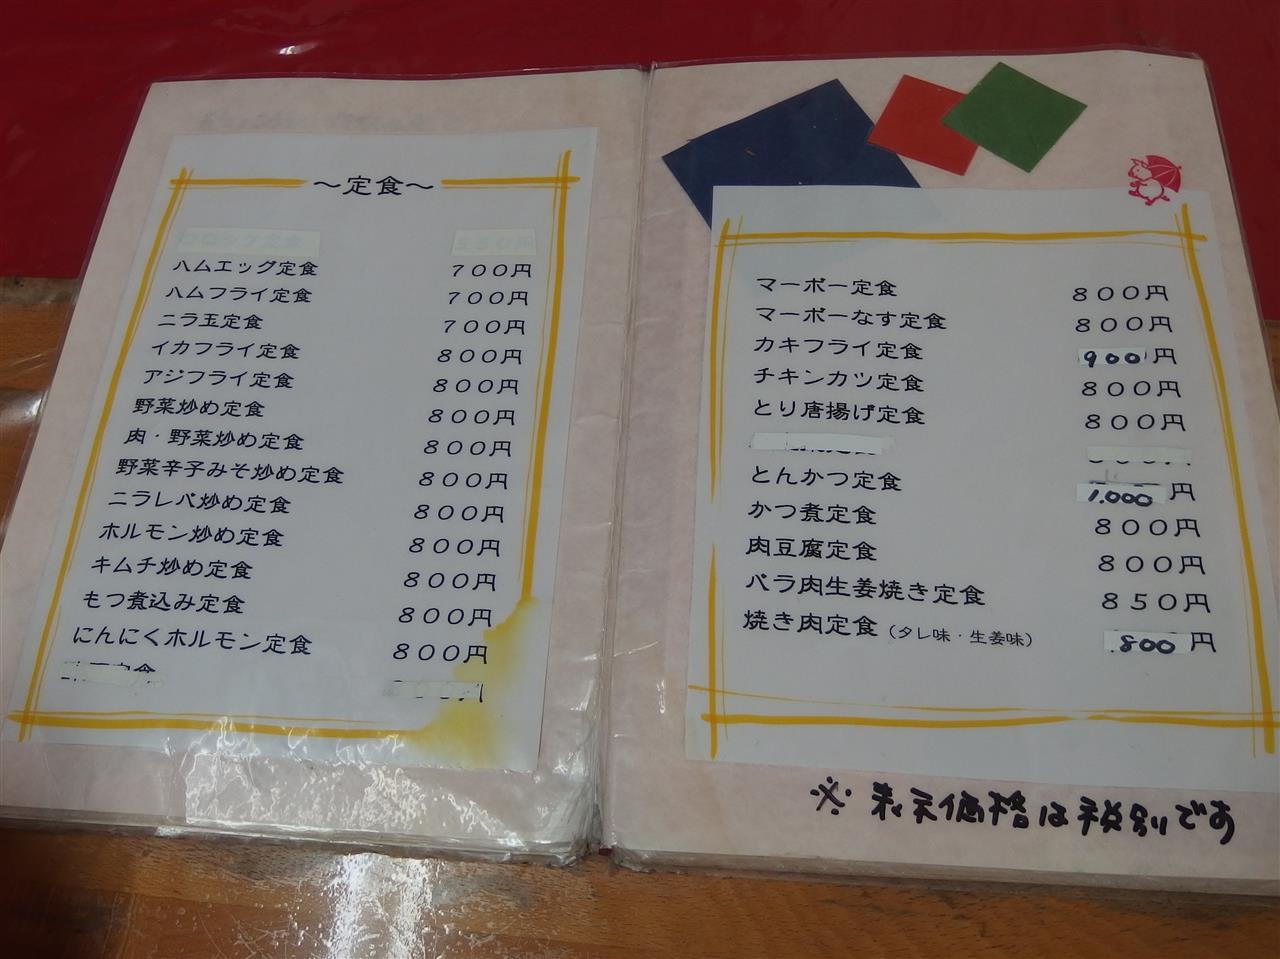 ～定食～
コロッケ定食 550円
ハムエッグ定食 700円
ハムフライ定食 700円
ニラ玉定食 700円
イカフライ定食 800円
アジフライ定食 800円
野菜炒め定食 800円
肉・野菜炒め定食 800円
野菜辛子みそ炒め定食 800円
ニラレバ炒め定食 800円
ホルモン炒め定食 800円
キムチ炒め定食 800円
もつ煮込み定食 800円
にんにくホルモン定食 800円
定食
マーボー定食 800円
マーボーなす定食 800円
カキフライ定食 900円
チキンカツ定食 800円
とり唐揚げ定食 800円
とんかつ定食 1,000円
かつ煮定食 800円
肉豆腐定食 800円
バラ肉生姜焼き定食 850円
焼き肉定食（タレ味・生姜味） 800円
※表示価格は税別です